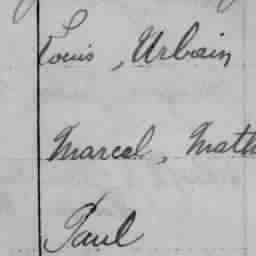 Louis, Urbain
Marcel, Math
Paul